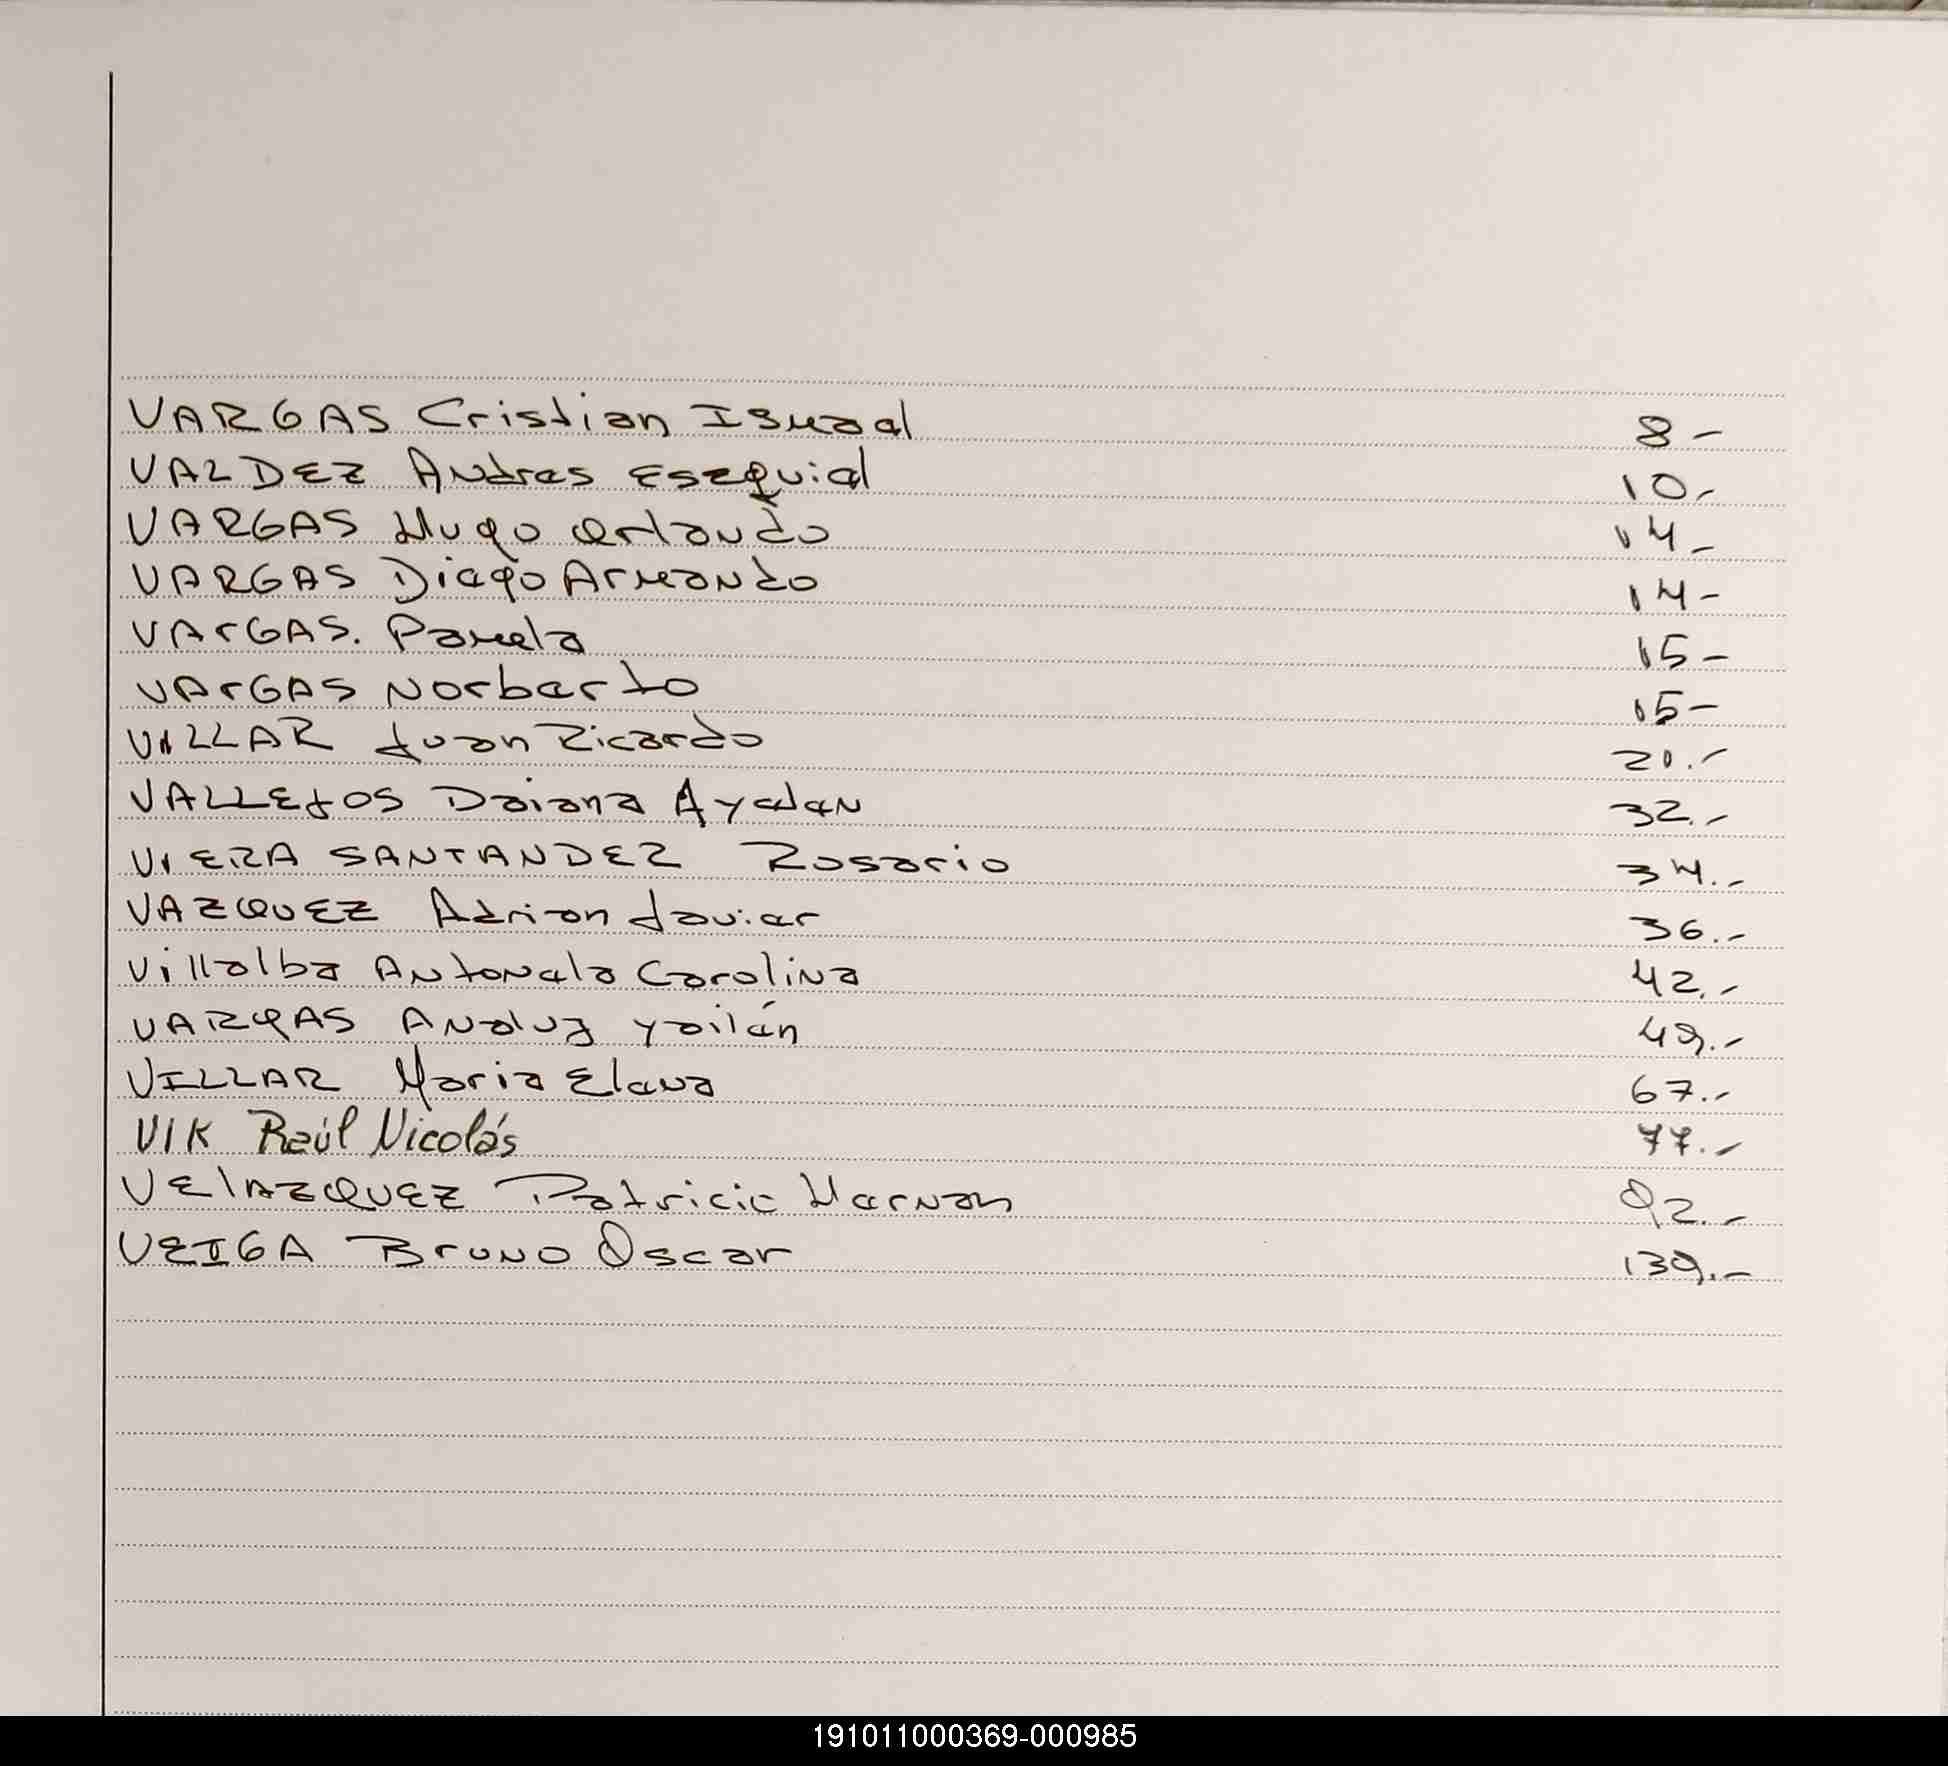 VARGAS Cristian Ismael 8-
VALDEZ Andres Esequiel 10.-
VARGAS Hugo Orlando 14-
VARGAS Diego Armando 14-
VArGAS. Pamela 15-
VArGAS Norberto 15-
VILLAR Juan Ricardo 20.-
VALLEJOS Daiana Ayelen 32.-
VIERA SANTANDER Rosario 34.-
VAZQUEZ Adrian Javier 36.-
Villalba Antonela Carolina 42.-
VARgAS Analuz Yailén 49.-
VILLAR Maria Elena 67.-
VIK Raúl Nicolás 77.-
VElAZQUEZ Patricio Hernan 92.-
VEIGA Bruno Oscar 139.-
191011000369-000985